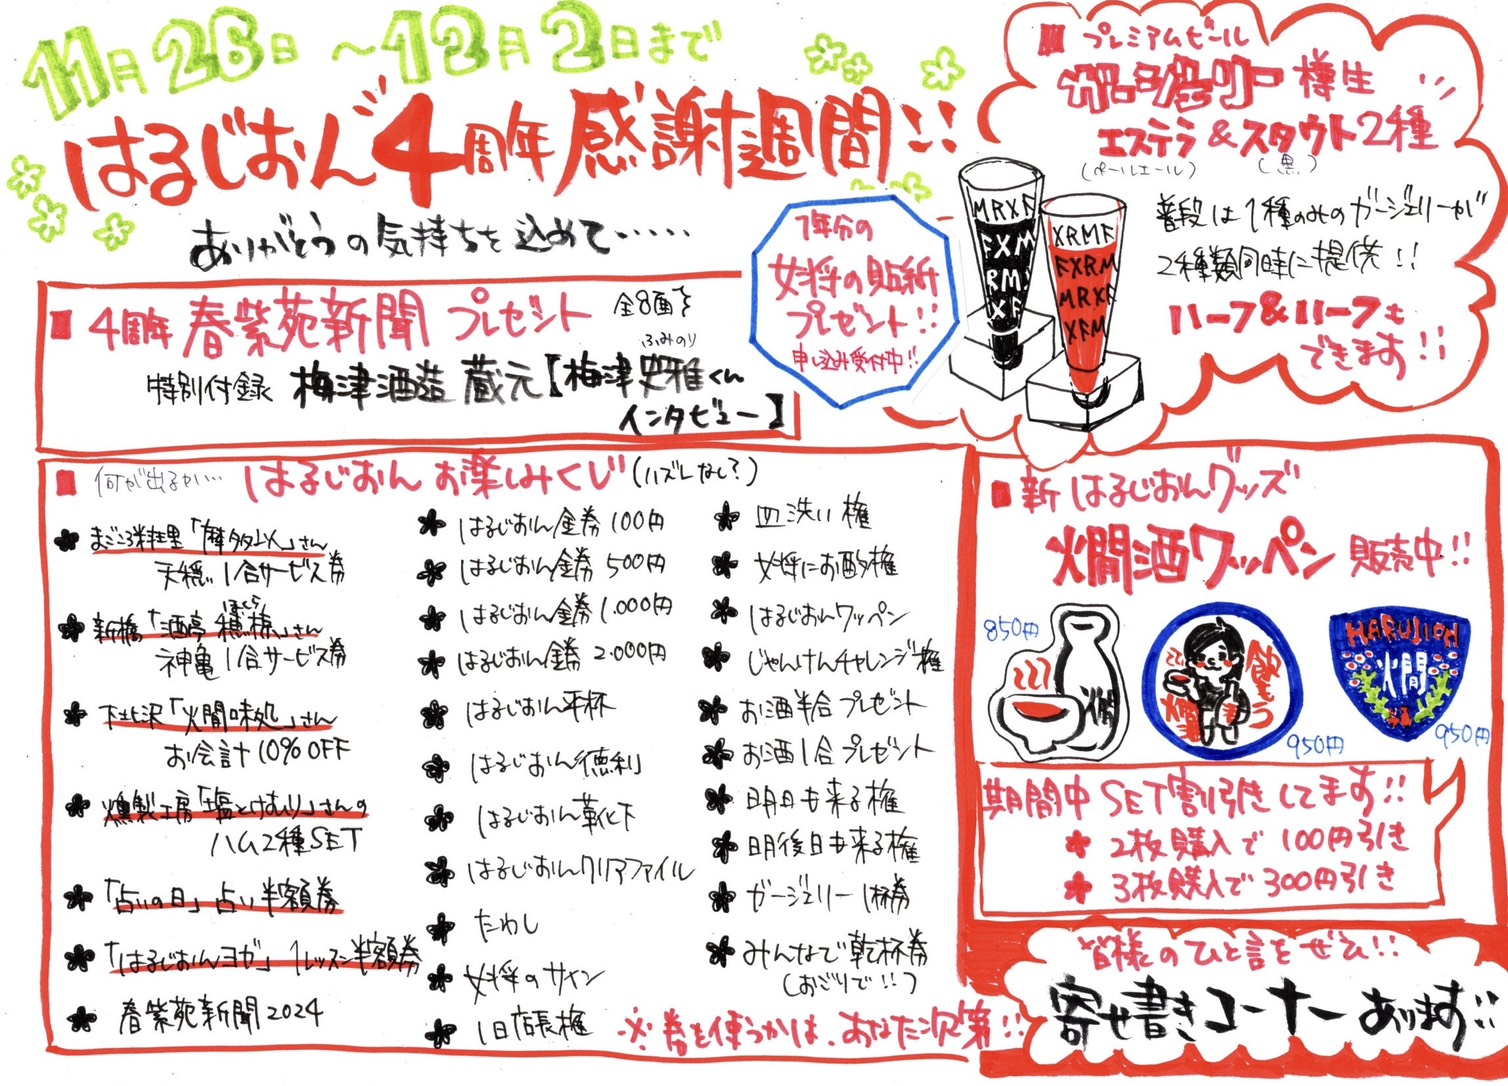 11月26日~12月2日まで
はるじおん4周年感謝週間!!
ありがとうの気持ちを込めて……
■4周年 春紫苑新聞 プレゼント 全8面を
特別付録 梅津酒造 蔵元【梅津史雅くん
ふみのり
インタビュー】
1年分の
女将の貼紙
プレゼント!!
申し込み受付中!!
■プレミアムビール
ガージェリー樽生
エステラ&スタウト2種
(ペールエール) (黒)
普段は1種のみのガージェリーが
2種類同時に提供!!
ハーフ&ハーフも
できます!!
■何が出るかい… はるじおんお楽しみくじ(ハズレなし?)
まごころ料理「摩多多以」さん
天穏 1合サービス券
新橋「酒亭 穂椋」さん
ほくら
神亀 1合サービス券
下北沢「火間味処」さん
お会計10%OFF
燻製工房「塩とけむり」さんの
ハム2種SET
「占いの日」占い半額券
「はるじおんヨガ」1レッスン半額券
春紫苑新聞2024
はるじおん金券100円
はるじおん金券500円
はるじおん金券1.000円
はるじおん金券2.000円
はるじおん平杯
はるじおん徳利
はるじおん靴下
はるじおんクリアファイル
たわし
女将のサイン
1日店長権
皿洗い権
女将にお酌権
はるじおんワッペン
じゃんけんチャレンジ権
お酒半合プレゼント
お酒1合プレゼント
明日も来る権
明後日も来る権
ガージェリー1杯券
みんなで乾杯券
(おごりで!!)
※券を使うかは、あなた次第!!
■新はるじおんグッズ
燗酒ワッペン 販売中!!
850円
燗
飲もう
燗酒
950円
HARUJION
火間
950円
期間中SET割引きしてます!!
2枚購入で100円引き
3枚購入で300円引き
皆様のひと言をぜひ!!
寄せ書きコーナーあります!!